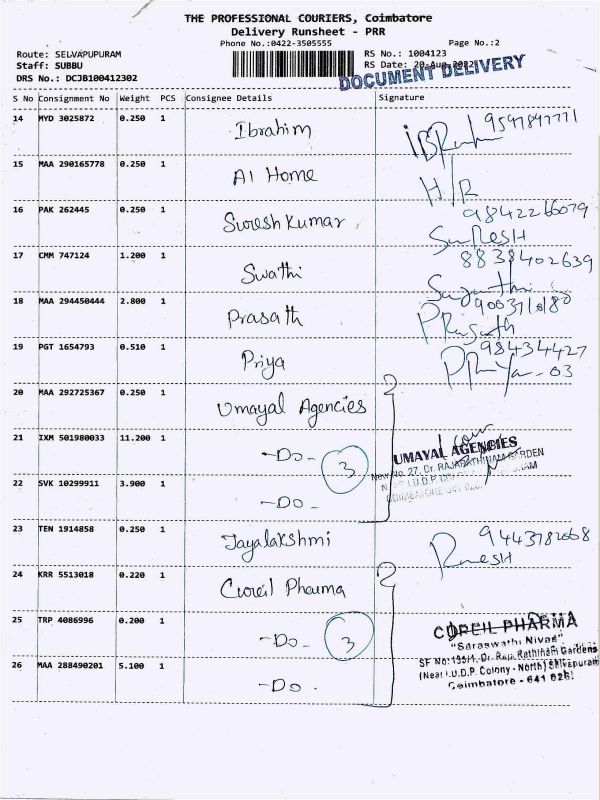 THE PROFESSIONAL COURIERS, Coimbatore
Delivery Runsheet - PRR
Phone No.:0422-3505555 Page No.:2
Route: SELVAPUPURAM RS No.: 1004123
Staff: SUBBU RS Date: 20-Aug-2022
DRS No.: DCJB100412302 DOCUMENT DELIVERY
S No Consignment No Weight PCS Consignee Details Signature
14 MYD 3025872 0.250 1 Ibrahim 9597897771
15 MAA 290165778 0.250 1 Al Home H/R
16 PAK 262445 0.250 1 Suresh Kumar 9842266079
SuResH
17 CMM 747124 1.200 1 Swathi 8838402639
18 MAA 294450444 2.800 1 Prasath
19 PGT 1654793 0.510 1 Priya 98434427
03
20 MAA 292725367 0.250 1 Umayal Agencies
21 IXM 501980033 11.200 1 -Do- 3 UMAYAL AGENCIES
New No. 27, Dr. RAJARATHINAM GARDEN
22 SVK 10299911 3.900 1 -Do-
23 TEN 1914858 0.250 1 Jayalakshmi
24 KRR 5513018 0.220 1 Cureil Pharma
25 TRP 4086996 0.200 1 -Do- 3 CUREIL PHARMA
"Saraswathi Nivas"
SF No:155/1, Dr. Raja Rathinam Gardens
26 MAA 288490201 5.100 1 -Do- (Near I.U.D.P. Colony - North) Selvapuram
Coimbatore - 641 026.